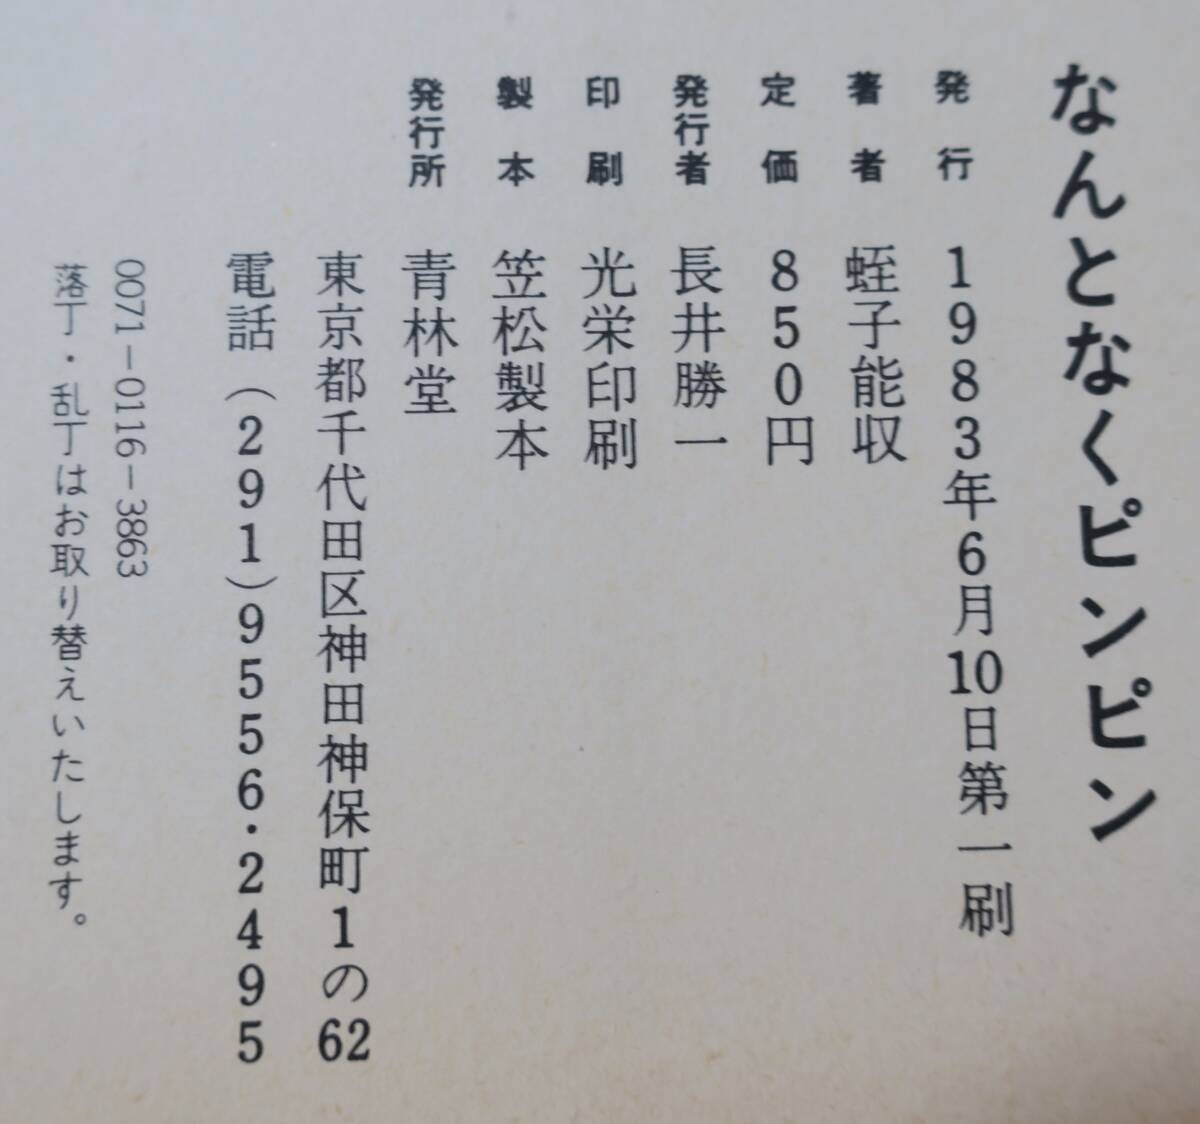 なんとなくピンピン
発行 1983年6月10日第一刷
著者 蛭子能収
定価 850円
発行者 長井勝一
印刷 光栄印刷
製本 笠松製本
発行所 青林堂
東京都千代田区神田神保町1の62
電話(291)9556・2495
0071-0116-3863
落丁・乱丁はお取り替えいたします。